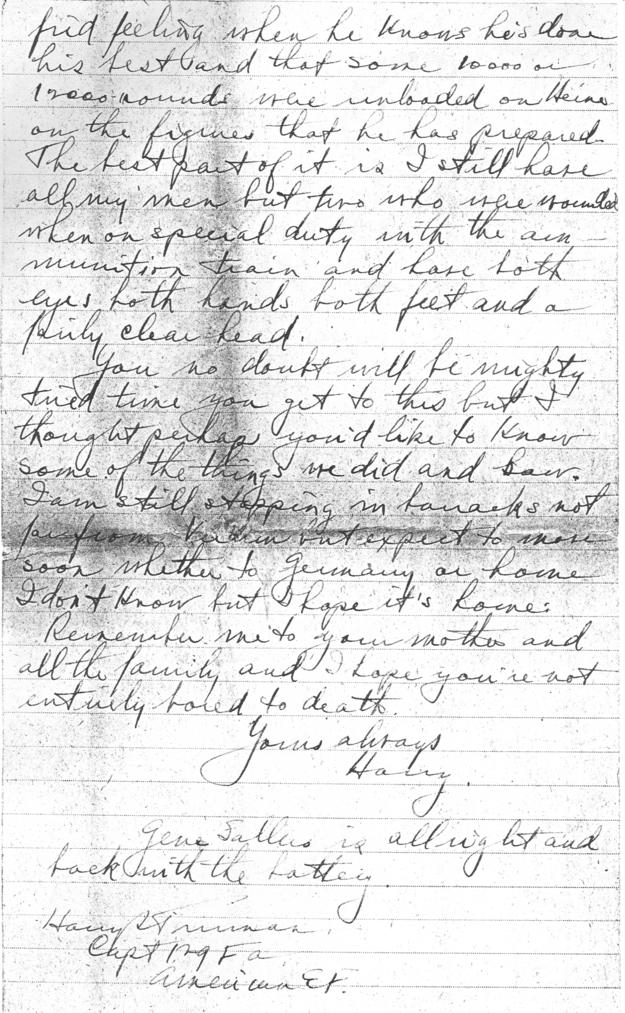 feeling when he knows he's done
his best and that some 10000 or
12000 rounds were unloaded on Heine
on the figures that he has prepared.
The best part of it is I still have
all my men but two who were wounded
when on special duty with the am-
munition train and have both
eyes both hands both feet and a
fairly clear head.
You no doubt will be mighty
tired time you get to this but I
thought perhaps you'd like to know
some of the things we did and saw.
I am still stopping in barracks not
far from Verdun but expect to move
soon whether to Germany or home
I don't know but I hope it's home.
Remember me to your mother and
all the family and I hope you're not
entirely bored to death.
Yours always
Harry.
Gene is all right and
back with the battery.
Harry S Truman.
Capt 129 F a
American E.F.